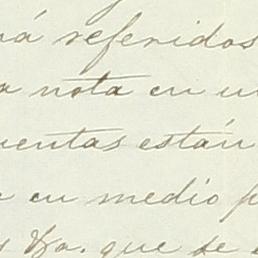 rá referidos
a nota en un
uentas están
e en medio p
s Va. que se